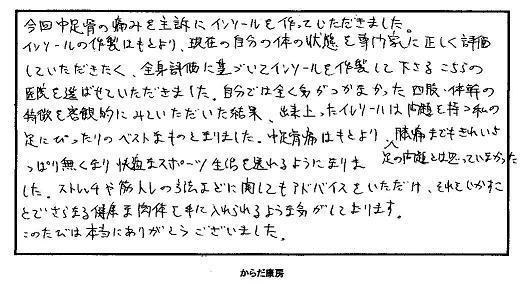 今回中足骨の痛みを主訴にインソールを作っていただきました。
インソールの作製はもとより、現在の自分の体の状態を専門家に正しく評価
していただきたく、全身評価に基づいてインソールを作製して下さるこちらの
医院を選ばせていただきました。自分では全く気がつかなかった四肢・体幹の
特徴を客観的にみていただいた結果、出来上ったインソールは問題を持つ私の
足にぴったりのベストなものとなりました。中足骨痛はもとより、膝痛までもきれいさ
足の問題とは思っていなかった
っぱり無くなり快適なスポーツ生活を送れるようになりま
した。ストレッチや筋トレの方法などに関してもアドバイスをいただけ、それを活かすこ
とでさらなる健康な肉体を手に入れられるような気がしております。
このたびは本当にありがとうございました。
からだ康房